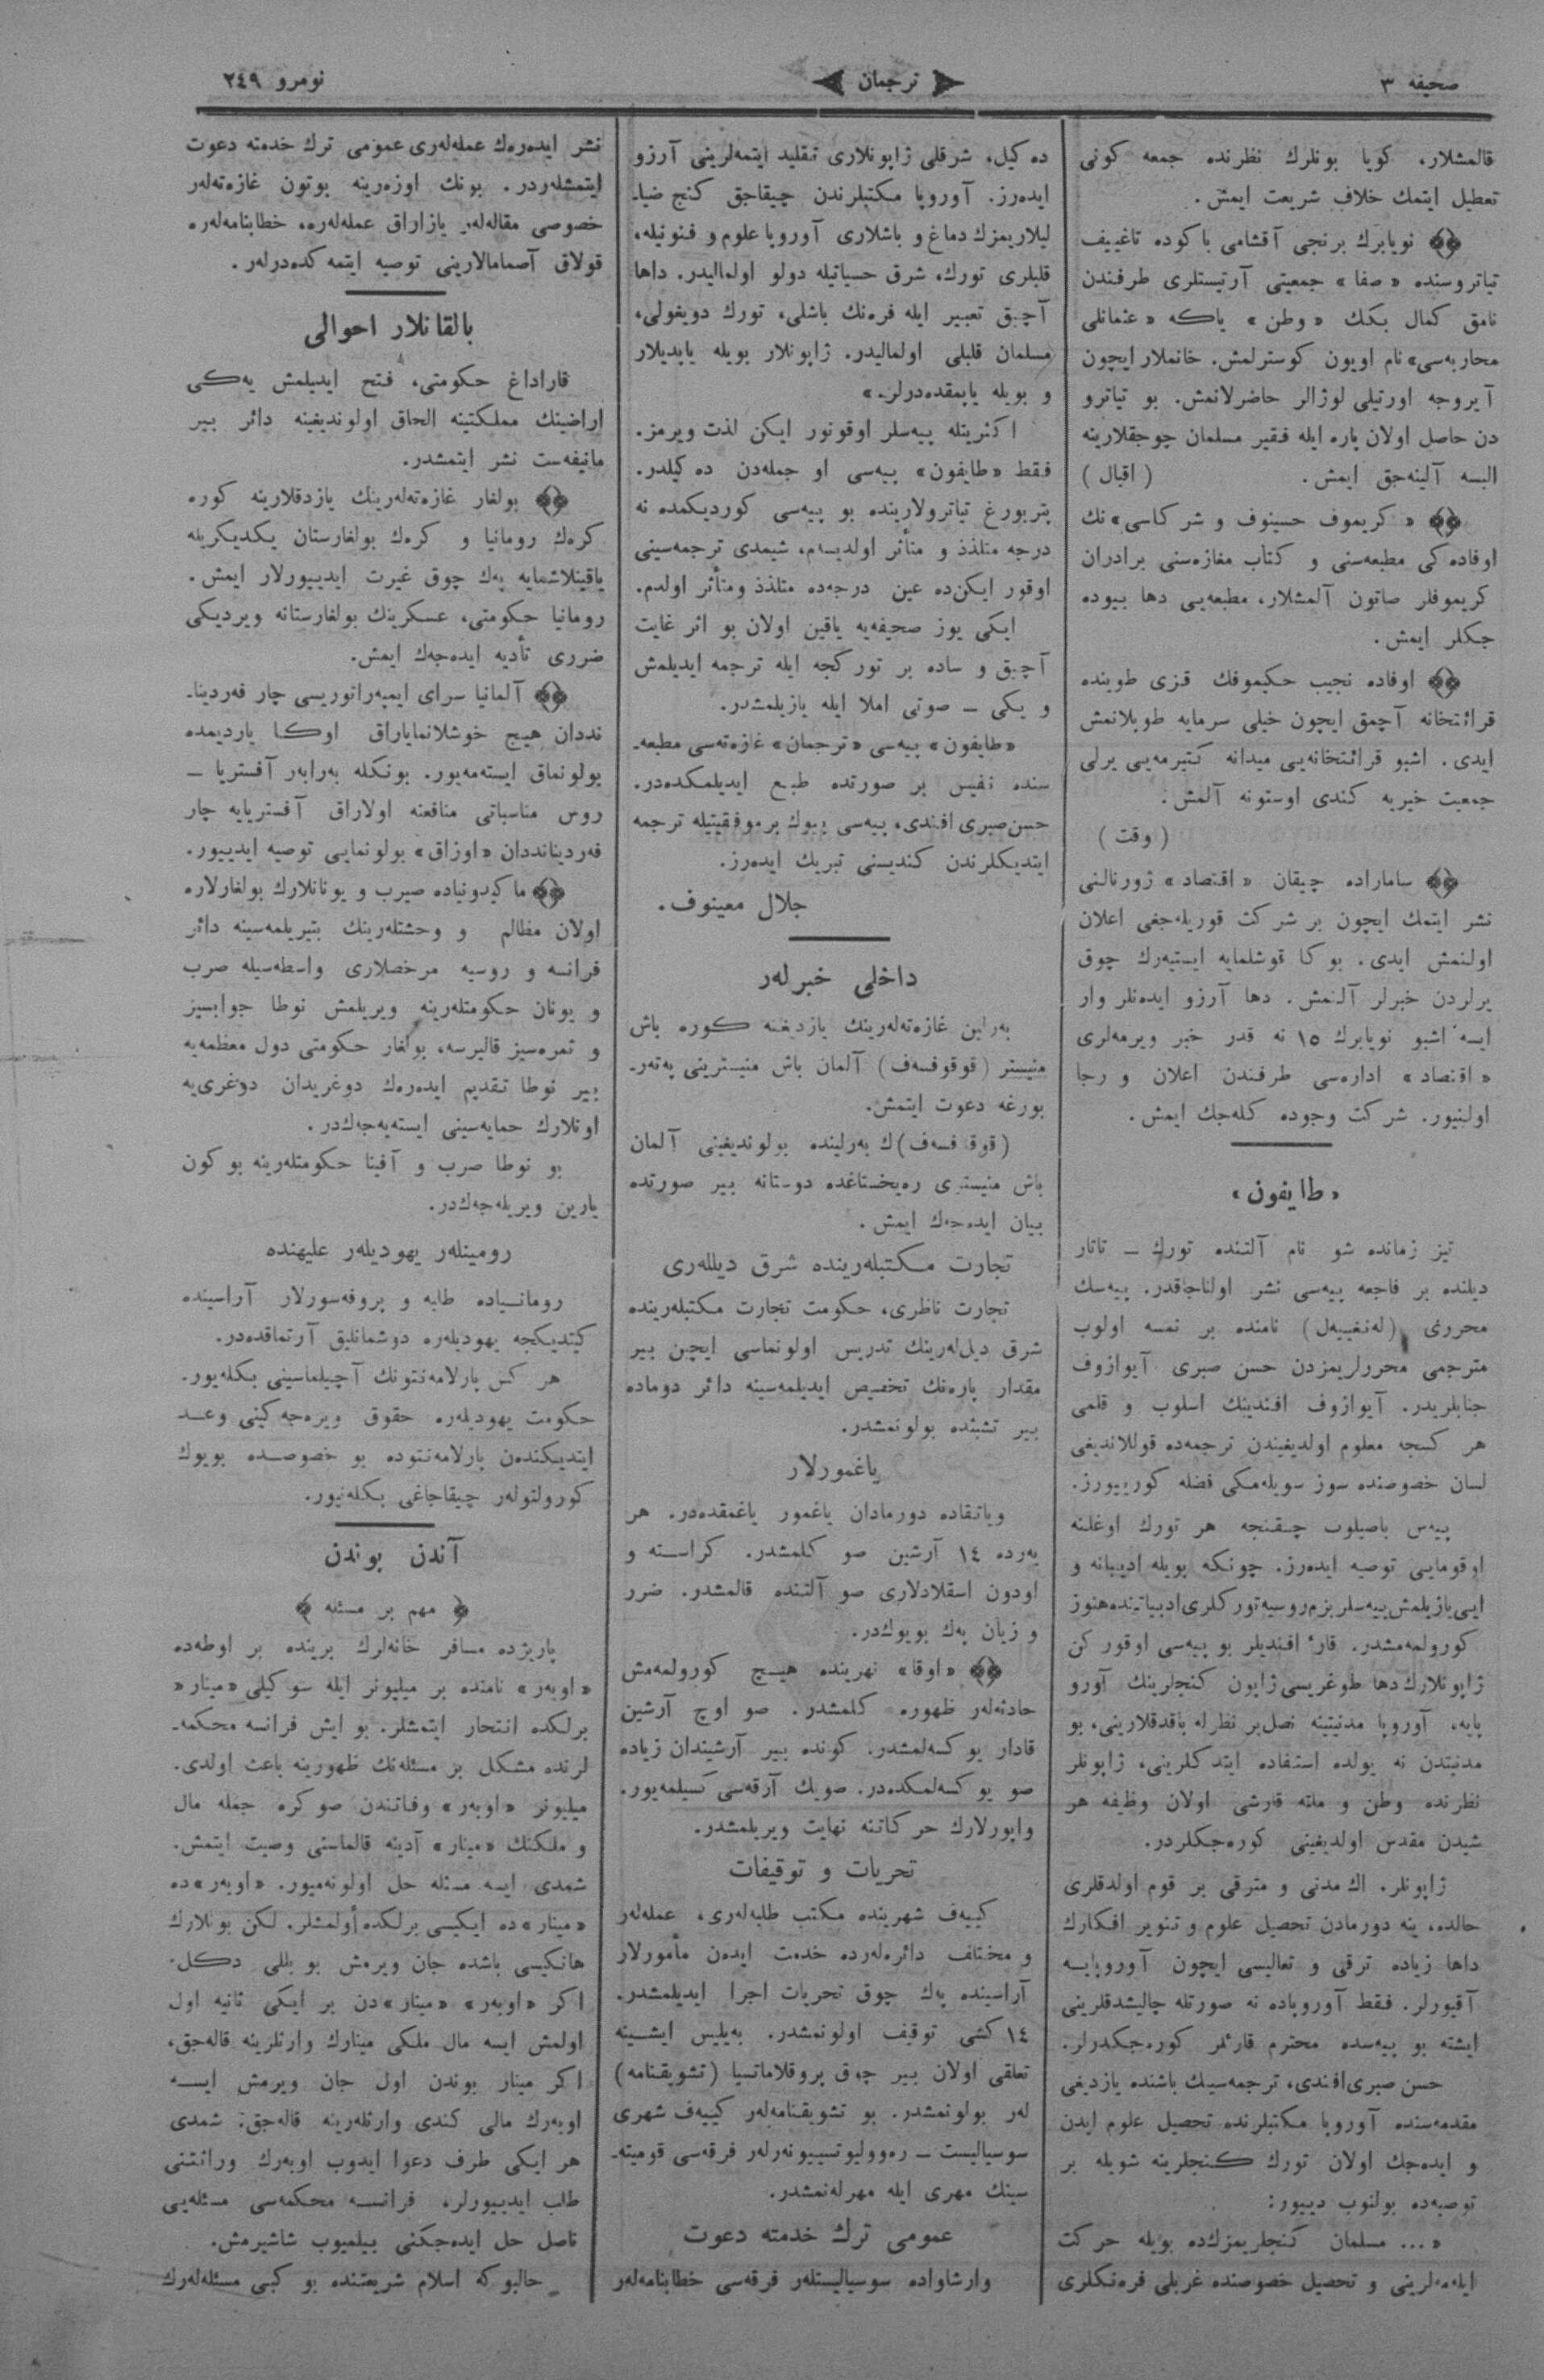 صحيفه ٣
ترجمان
نومرو ٢٤٩
قالمشلار، كويا بونلرك نظرنده جمعه كونى
تعطيل ايتمك خلاف شريعت ايمش.
نويابرك برنجى آقشامى باكوده تاغييف
تياتروسنده «صفا» جمعيتى آرتيستلرى طرفندن
نامق كمال بكك «وطن» ياكه «عثمانلى
محاربه‌سى» نام اويون كوسترلمش. خانملار ايچون
آيروجه اورتيلى لوژالر حاضرلانمش. بو تياترو
دن حاصل اولان پاره ايله فقير مسلمان چوجقلارينه
البسه آلينه‌جق ايمش. (اقبال)
«كريموف حسينوف و شركاسى» نك
اوفاده‌كى مطبعه‌سنى و كتاب مغازه‌سنى برادران
كريموفلر صاتون آلمشلار، مطبعه‌يى دها بيوده
جكلر ايمش.
اوفاده نجيب حكيموفك قزى طوينده
قرائتخانه آچمق ايچون خيلى سرمايه طوپلانمش
ايدى. اشبو قرائتخانه‌يى ميدانه كتيرمه‌يى يرلى
جمعيت خيريه كندى اوستونه آلمش.
(وقت)
ساماراده چيقان «اقتصاد» ژورنالنى
نشر ايتمك ايچون بر شركت قوريله‌جغى اعلان
اولنمش ايدى. بوكا قوشلمايه ايستيه‌رك چوق
يرلردن خبرلر آلنمش. دها آرزو ايده‌نلر وار
ايسه اشبو نويابرك ١٥ نه قدر خبر ويرمه‌لرى
«اقتصاد» اداره‌سى طرفندن اعلان و رجا
اولنيور. شركت وجوده كله‌جك ايمش.
«طايفون»
تيز زمانده شو نام آلتنده تورك ـ تاتار
ديلنده بر فاجعه پيه‌سى نشر اولناجاقدر. پيه‌سك
محررى (له‌نغييه‌ل) نامنده بر نمسه اولوب
مترجمى محررلريمزدن حسن صبرى آيوازوف
جنابلريدر. آيوازوف افندينك اسلوب و قلمى
هر كسجه معلوم اولديغيندن ترجمه‌ده قوللانديغى
لسان خصوصنده سوز سويله‌مكى فضله كورييورز.
پيه‌س باصيلوب چيقنجه هر تورك اوغلنه
اوقومايى توصيه ايده‌رز. چونكه بويله اديبانه و
ايى يازيلمش پيه‌سلر بزم روسيه توركلرى ادبياتينده هنوز
كورولمه‌مشدر. قارء افنديلر بو پيه‌سى اوقوركن
ژاپونلارك دها طوغريسى ژاپون كنجلرينك آورو
پايه، آوروپا مدنيتينه نصل بر نظرله باقدقلارينى، بو
مدنيتدن نه يولده استفاده ايتدكلرينى، ژاپونلر
نظرنده وطن و ملته قارشى اولان وظيفه هر
شيدن مقدس اولديغينى كوره‌جكلردر.
ژاپونلر. اك مدنى و مترقى بر قوم اولدقلرى
حالده، ينه دورمادن تحصيل علوم و تنوير افكارك
داها زياده ترقى و تعاليسى ايچون آوروپايه
آقيورلر. فقط آوروپاده نه صورتله چاليشدقلرينى
ايشته بو پيه‌سده محترم قارئلر كوره‌جكدرلر.
حسن صبرى افندى، ترجمه‌سينك باشنده يازديغى
مقدمه‌سنده آوروپا مكتبلرنده تحصيل علوم ايدن
و ايده‌جك اولان تورك كنجلرينه شويله بر
توصيه‌ده بولنوب دييور:
«... مسلمان كنجلريمزك‌ده بويله حركت
ايله‌مه‌لرينى و تحصيل خصوصنده غربلى فره‌نكلرى
ده‌كيل، شرقلى ژاپونلارى تقليد ايتمه‌لرينى آرزو
ايده‌رز. آوروپا مكتبلرندن چيقاجق كنج ضيا‌ـ
ليلاريمزك دماغ و باشلارى آوروپا علوم و فنونيله،
قلبلرى تورك، شرق حسياتيله دولو اولماليدر. داها
آچيق تعبير ايله فره‌نك باشلى، تورك دويغولى،
مسلمان قلبلى اولماليدر. ژاپونلار بويله ياپديلار
و بويله ياپمقده‌درلر.»
اكثريتله پيه‌سلر اوقونور ايكن لذت ويرمز.
فقط «طايفون» پيه‌سى او جمله‌دن ده‌كيلدر.
پتربورغ تياترولارينده بو پيه‌سى كورديكمده نه
درجه متلذذ و متأثر اولديسه‌م، شيمدى ترجمه‌سينى
اوقور ايكن‌ده عين درجه‌ده متلذذ و متأثر اولدم.
ايكى يوز صحيفه‌يه ياقين اولان بو اثر غايت
آچيق و ساده بر توركجه ايله ترجمه ايديلمش
و يكى ـ صوتى املا ايله يازيلمشدر.
«طايفون» پيه‌سى «ترجمان» غازه‌ته‌سى مطبعه‌ـ
سنده نفيس بر صورتده طبع ايديلمكده‌در.
حسن صبرى افندى، پيه‌سى بيوك بر موفقيتيله ترجمه
ايتديكلرندن كنديسنى تبريك ايده‌رز.
جلال معينوف.
داخلى خبرله‌ر
به‌رلين غازه‌ته‌له‌رينك يازديغنه كوره باش
منيستر (قوقوفسه‌ف) آلمان باش منيسترينى په‌ته‌ر‌ـ
بورغه دعوت ايتمش.
(قوقوفسه‌ف)ك به‌رلينده بولونديغينى آلمان
باش منيسترى ره‌يخستاغده دوستانه بير صورتده
بيان ايده‌جه‌ك ايمش.
تجارت مكتبله‌رينده شرق ديلله‌رى
تجارت ناظرى، حكومت تجارت مكتبله‌رينده
شرق ديل‌له‌رينك تدريس اولونماسى ايچين بير
مقدار پاره‌نك تخصيص ايديلمه‌سينه دائر دوماده
بير تشبثده بولونمشدر.
ياغمورلار
وياتقاده دورمادان ياغمور ياغمقده‌در. هر
يه‌رده ١٤ آرشين صو كلمشدر. كراسته و
اودون اسقلادلارى صو آلتنده قالمشدر. ضرر
و زيان په‌ك بويوك‌در.
«اوقا» نهرينده هيچ كورولمه‌مش
حادثه‌لر ظهوره كلمشدر. صو اوچ آرشين
قادار يوكسه‌لمشدر. كونده بير آرشيندان زياده
صو يوكسه‌لمكده‌در. صويك آرقه‌سى كسيلمه‌يور.
واپورلارك حركاتنه نهايت ويريلمشدر.
تحريات و توقيفات
كييه‌ف شهرينده مكتب طلبه‌له‌رى، عمله‌له‌ر
و مختلف دائره‌له‌رده خدمت ايده‌ن مأمورلار
آراسينده په‌ك چوق تحريات اجرا ايديلمشدر.
١٤ كشى توقيف اولونمشدر. به‌يليس ايشينه
تعلقى اولان بير چوق پروقلاماتسيا (تشويقنامه)
له‌ر بولونمشدر. بو تشويقنامه‌لر كييه‌ف شهرى
سوسياليست ـ ره‌ووليوتسييونه‌رله‌ر فرقه‌سى قوميته‌ـ
سينك مهرى ايله مهرله‌نمشدر.
عمومى ترك خدمته دعوت
وارشاواده سوسياليستله‌ر فرقه‌سى خطابنامه‌له‌ر
نشر ايده‌ره‌ك عمله‌له‌رى عمومى ترك خدمته دعوت
ايتمشله‌ردر. بونك اوزه‌رينه بوتون غازه‌ته‌له‌ر
خصوصى مقاله‌له‌ر يازاراق عمله‌له‌ره، خطابنامه‌له‌ره
قولاق آصمامالارينى توصيه ايتمه‌كده‌درله‌ر.
بالقانلار احوالى
قاراداغ حكومتى، فتح ايديلمش يه‌كى
اراضينك مملكتينه الحاق اولونديغينه دائر بير
مانيفه‌ست نشر ايتمشدر.
بولغار غازه‌ته‌له‌رينك يازدقلارينه كوره
كره‌ك رومانيا و كره‌ك بولغارستان يكديكريله
ياقينلاشمايه په‌ك چوق غيرت ايدييورلار ايمش.
رومانيا حكومتى، عسكرينك بولغارستانه ويرديكى
ضررى تأديه ايده‌جه‌ك ايمش.
آلمانيا سراى ايمپه‌راتوريسى چار فه‌ردينا‌ـ
نددان هيچ خوشلانماياراق اوكا يارديمده
بولونماق ايسته‌مه‌يور. بونكله به‌رابه‌ر آفستريا ـ
روس مناسباتى منافعنه اولاراق آفستريايه چار
فه‌رديناندdان «اوزاق» بولونمايى توصيه ايدييور.
ماكيدونياده صيرب و يونانلارك بولغارلاره
اولان مظالم و وحشتله‌رينك بتيريلمه‌سينه دائر
فرانسه و روسيه مرخصلارى واسطه‌سيله صرب
و يونان حكومتله‌رينه ويريلمش نوطا جوابسيز
و ثمره‌سيز قاليرسه، بولغار حكومتى دول معظمه‌يه
بير نوطا تقديم ايده‌ره‌ك دوغريدان دوغرى‌يه
اونلارك حمايه‌سينى ايسته‌يه‌جه‌ك‌در.
بو نوطا صرب و آفينا حكومتله‌رينه بوكون
يارين ويريله‌جه‌ك‌در.
رومينله‌ر يهوديله‌ر عليهنده
رومانياده طلبه و پروفه‌سورلار آراسينده
كيتديكجه يهوديله‌ره دوشمانليق آرتماقده‌در.
هر كس پارلامه‌نتونك آچيلماسينى بكله‌يور.
حكومت يهوديله‌ره حقوق ويره‌جه‌كينى وعد
ايتديكنده‌ن پارلامه‌نتوده بو خصوصده بويوك
كورولتوله‌ر چيقاجاغى بكله‌نيور.
آندن بوندن
مهم بر مسئله
پاريژده مسافر خانه‌لرك برينده بر اوطه‌ده
«اوبه‌ر» نامنده بر ميليونر ايله سوكيلى «مينار»
برلكده انتحار ايتمشلر. بو ايش فرانسه محكمه‌ـ
لرنده مشكل بر مسئله‌نك ظهورينه باعث اولدى.
ميليونر «اوبه‌ر» وفاتندن صوكره جمله مال
و ملكنك «مينار» آدينه قالماسنى وصيت ايتمش.
شمدى ايسه مسئله حل اولونه‌ميور. «اوبه‌ر»ده
«مينار»ده ايكيسى برلكده اولمشلر. لكن بونلارك
هانكيسى باشده جان ويرمش بو بللى دكل.
اكر «اوبه‌ر» «مينار»دن بر ايكى ثانيه اول
اولمش ايسه مال ملكى مينارك وارثلرينه قاله‌جق،
اكر مينار بوندن اول جان ويرمش ايسه
اوبه‌رك مالى كندى وارثله‌رينه قاله‌جق: شمدى
هر ايكى طرف دعوا ايدوب اوبه‌رك وراثتنى
طلب ايدييورلر، فرانسه محكمه‌سى مسئله‌يى
ناصل حل ايده‌جكنى بيلميوب شاشيرمش.
حالبوكه اسلام شريعتنده بو كبى مسئله‌له‌رك